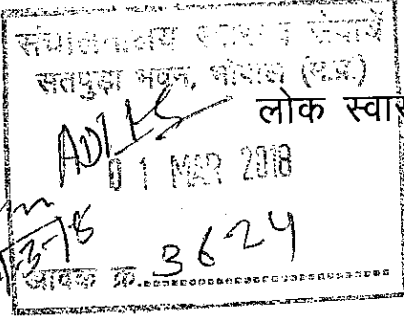 संचालनालय स्वास्थ्य सेवायें
सतपुड़ा भवन, भोपाल (म.प्र.)
लोक स्वास
0 1 MAR 2018
आवक क्र. 3624